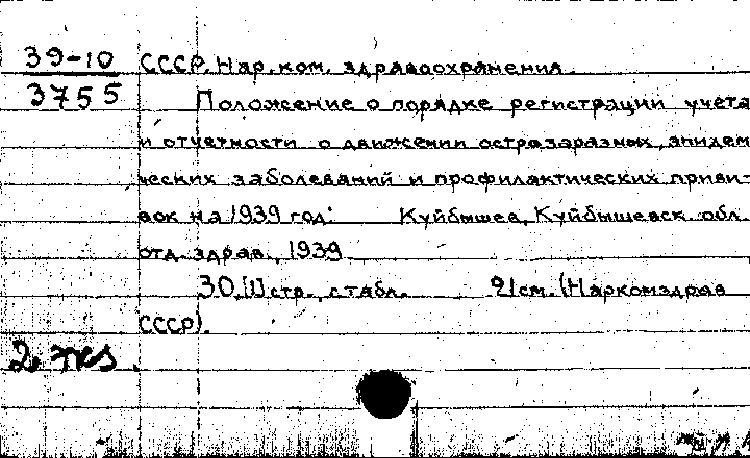 39-10 СССР. Нар. ком. здравоохранения.
3755 Положение о порядке регистрации учета
и отчетности о движении острозаразных, эпидем
ческих заболеваний и профилактических приви-
вок на 1939 год. Куйбышев, Куйбышевск. обл.
отд. здрав., 1939
30,[1] стр., табл. 21см. (Наркомздрав
СССР).
2 экз.